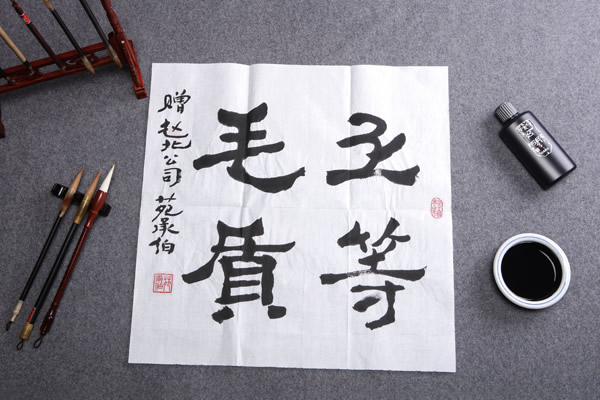 等
毛质
赠赵北公司 苑承伯